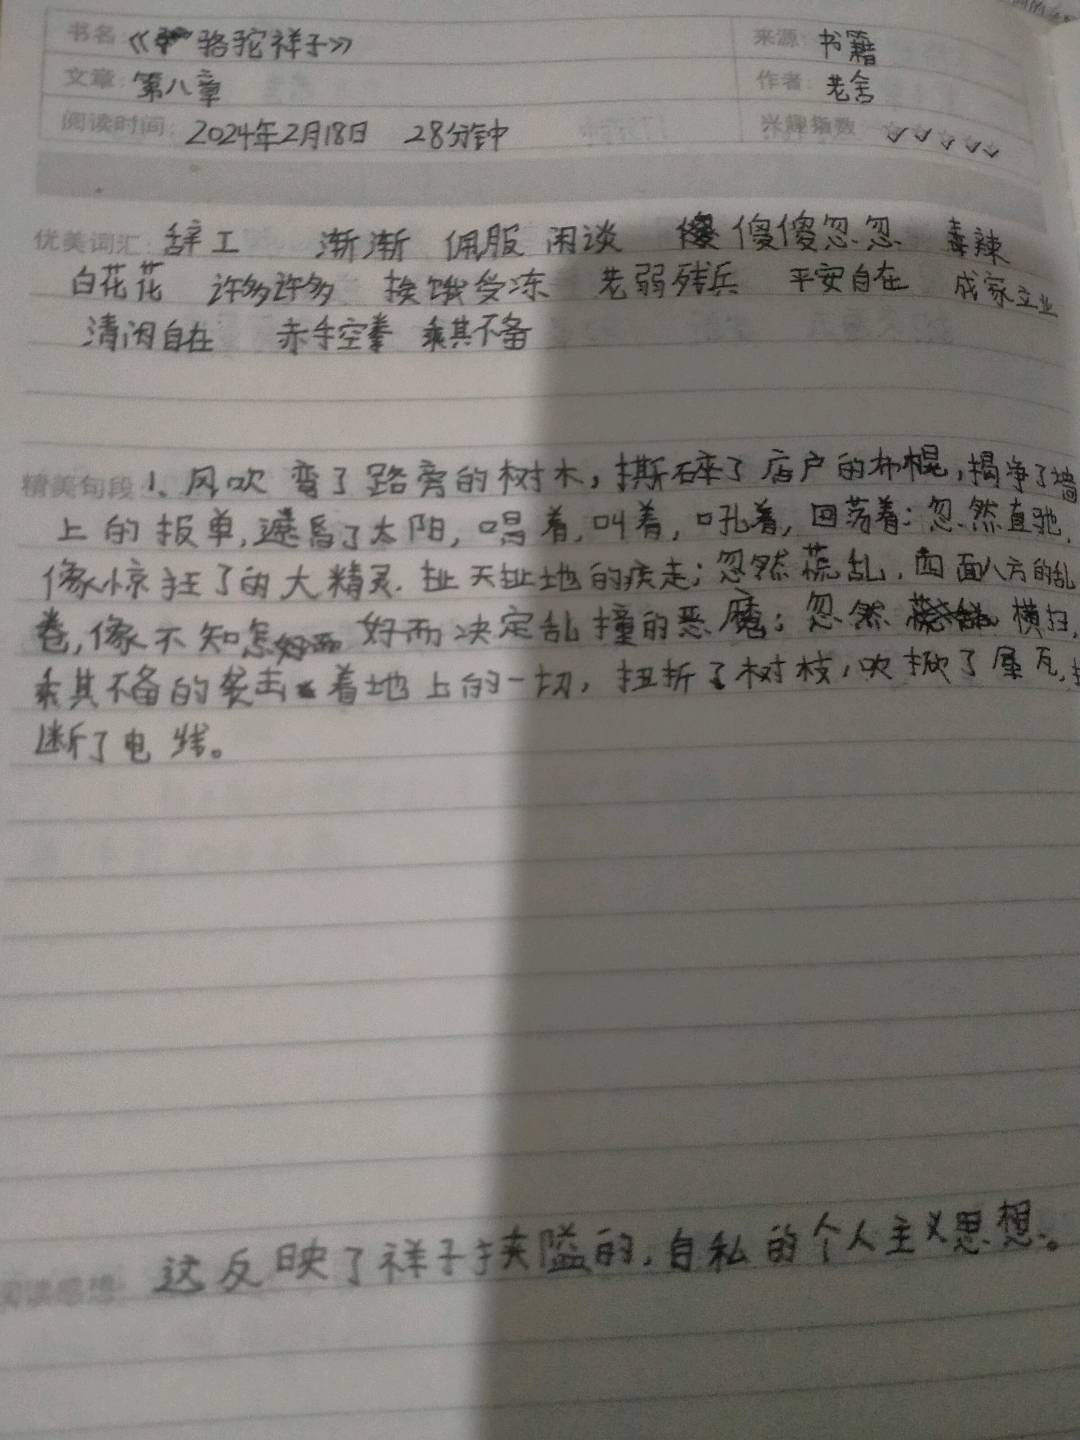 书名 《骆驼祥子》 来源: 书籍
文章: 第八章 作者: 老舍
阅读时间: 2024年2月18日 28分钟 兴趣指数 ☆☆☆☆☆
优美词汇: 辞工 渐渐 佩服 闲谈 傻傻忽忽 毒辣
白花花 许多许多 挨饿受冻 老弱残兵 平安自在 成家立业
清闲自在 赤手空拳 乘其不备
精美句段 1、风吹弯了路旁的树木,撕碎了店户的布棍,揭净了墙
上的报单,遮昌了太阳,唱着,叫着,吼着,回荡着;忽然直驰,
像惊狂了的大精灵.扯天扯地的疾走;忽然慌乱,四面八方的乱
卷,像不知怎好而决定乱撞的恶魔;忽然横扫,
乘其不备的袭击着地上的一切,扭折了树枝,吹掀了屋瓦,
断了电线。
阅读感想: 这反映了祥子狭隘的,自私的个人主义思想。